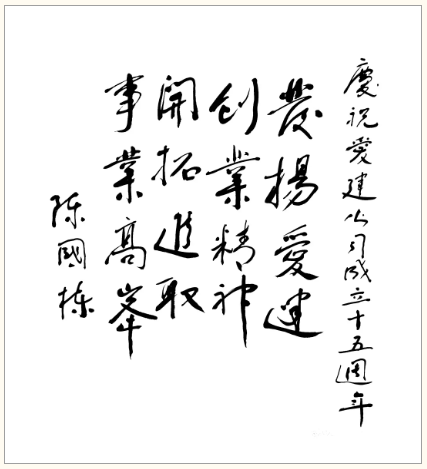 慶祝愛建公司成立十五週年
發揚愛建
創業精神
開拓進取
事業高峯
陈國栋